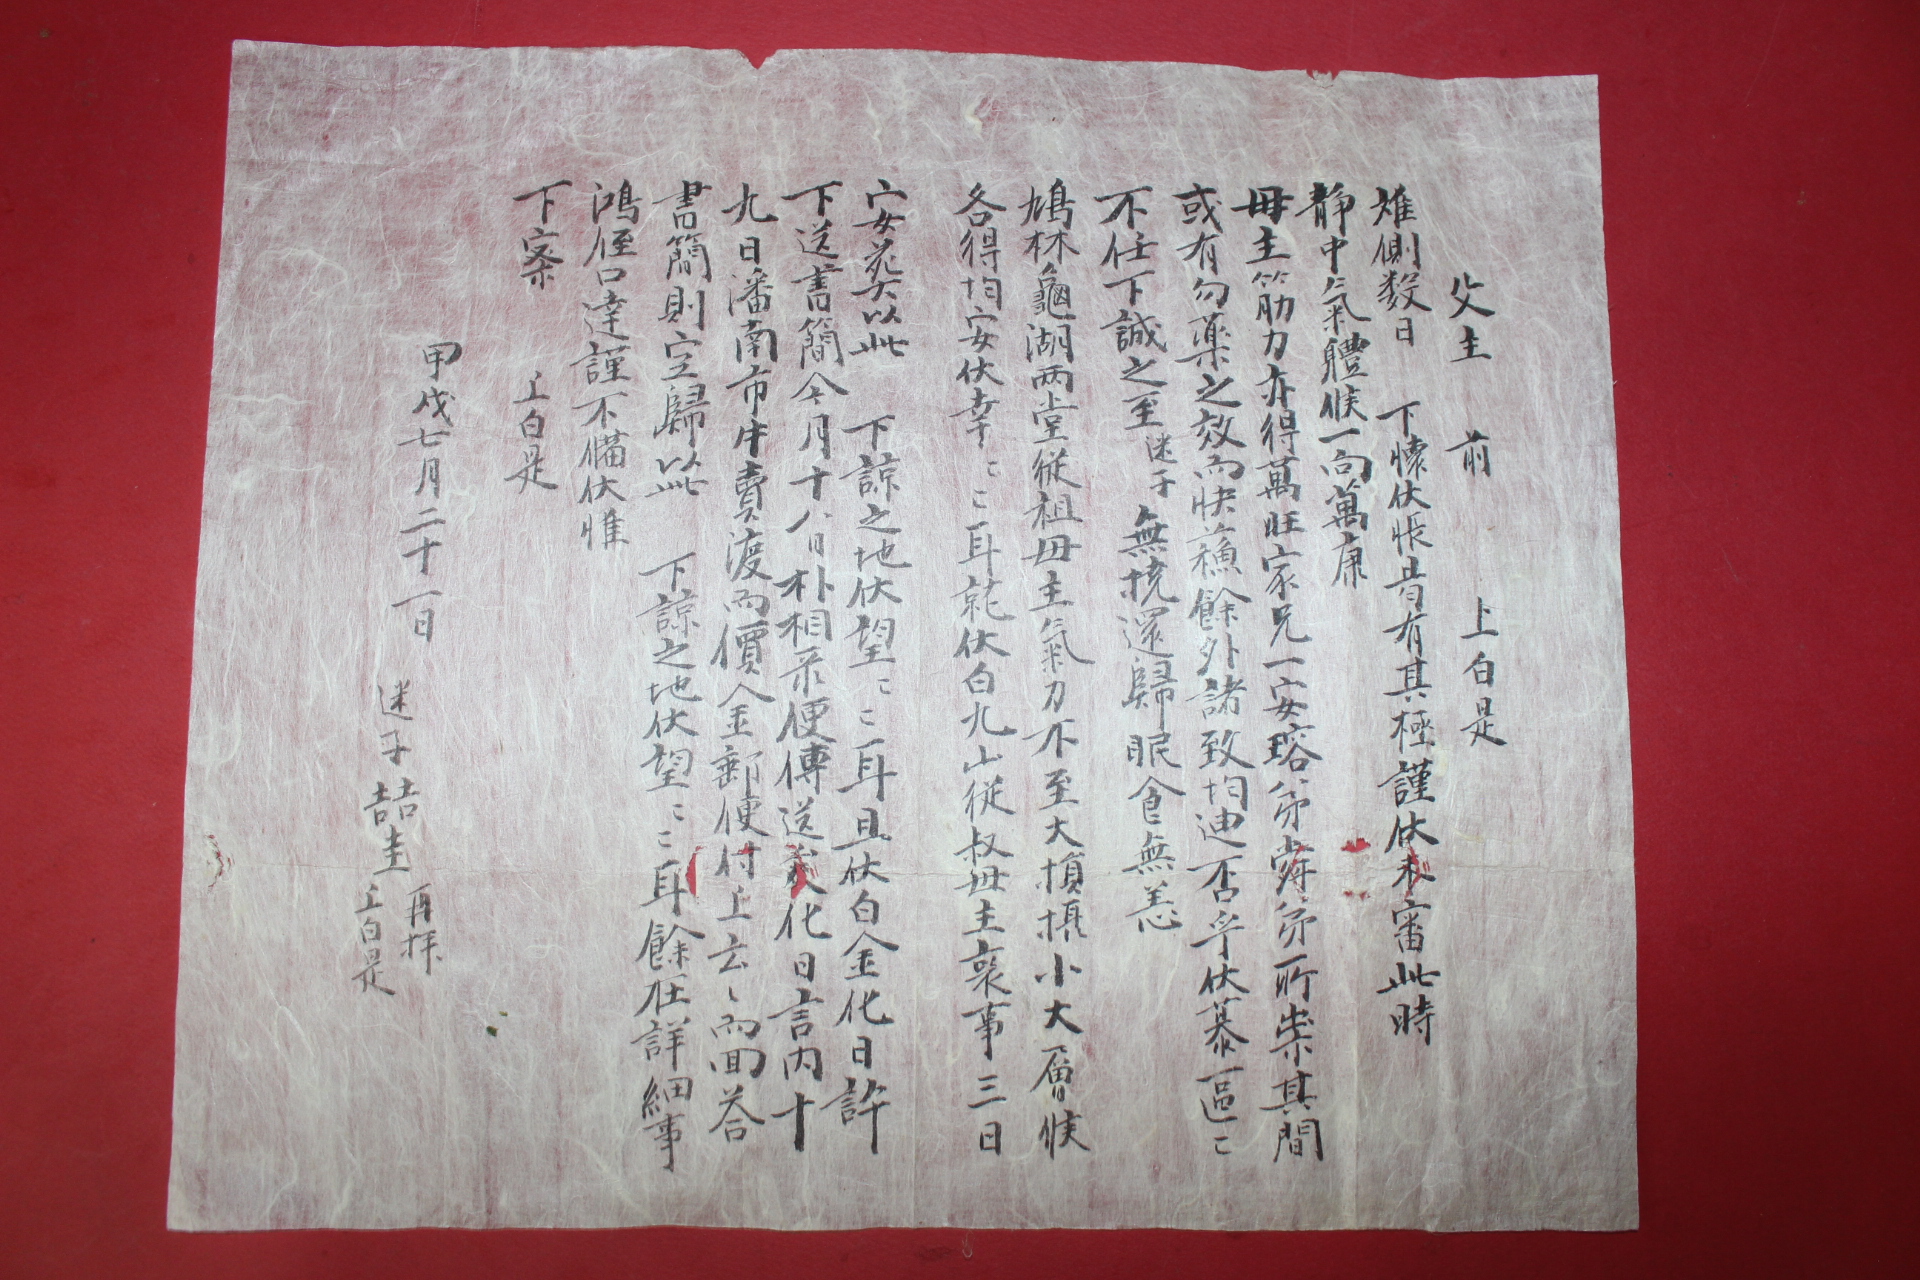 父主 前 上白是
離側数日 下懷伏悵昔有其極謹伏未審此時
靜中氣軆候一向萬康
毋主筋力亦得萬旺家兄一安瑢弟舜弟所祟其間
或有勿藥之效而快蘓餘外諸致均迪否乎伏慕區〻
不任下誠之至迷子無撓還歸眠食無恙
鳩林龜湖兩堂從祖毋主氣力不至大損損小大層候
各得均安伏幸〻〻耳就伏白九山從叔毋主襄事三日
安葬以此 下諒之地伏望〻〻耳且伏白金化日許
下送書簡今月十八日朴相來便傳送矣化日言內十
九日潘南市牛賣渡而價金郵便付上云〻而回答
書簡則空歸以此 下諒之地伏望〻〻耳餘在詳細事
鴻侄口達謹不備伏惟
下察 上白是
甲戌七月二十一日 迷子喆圭 再拜 上白是